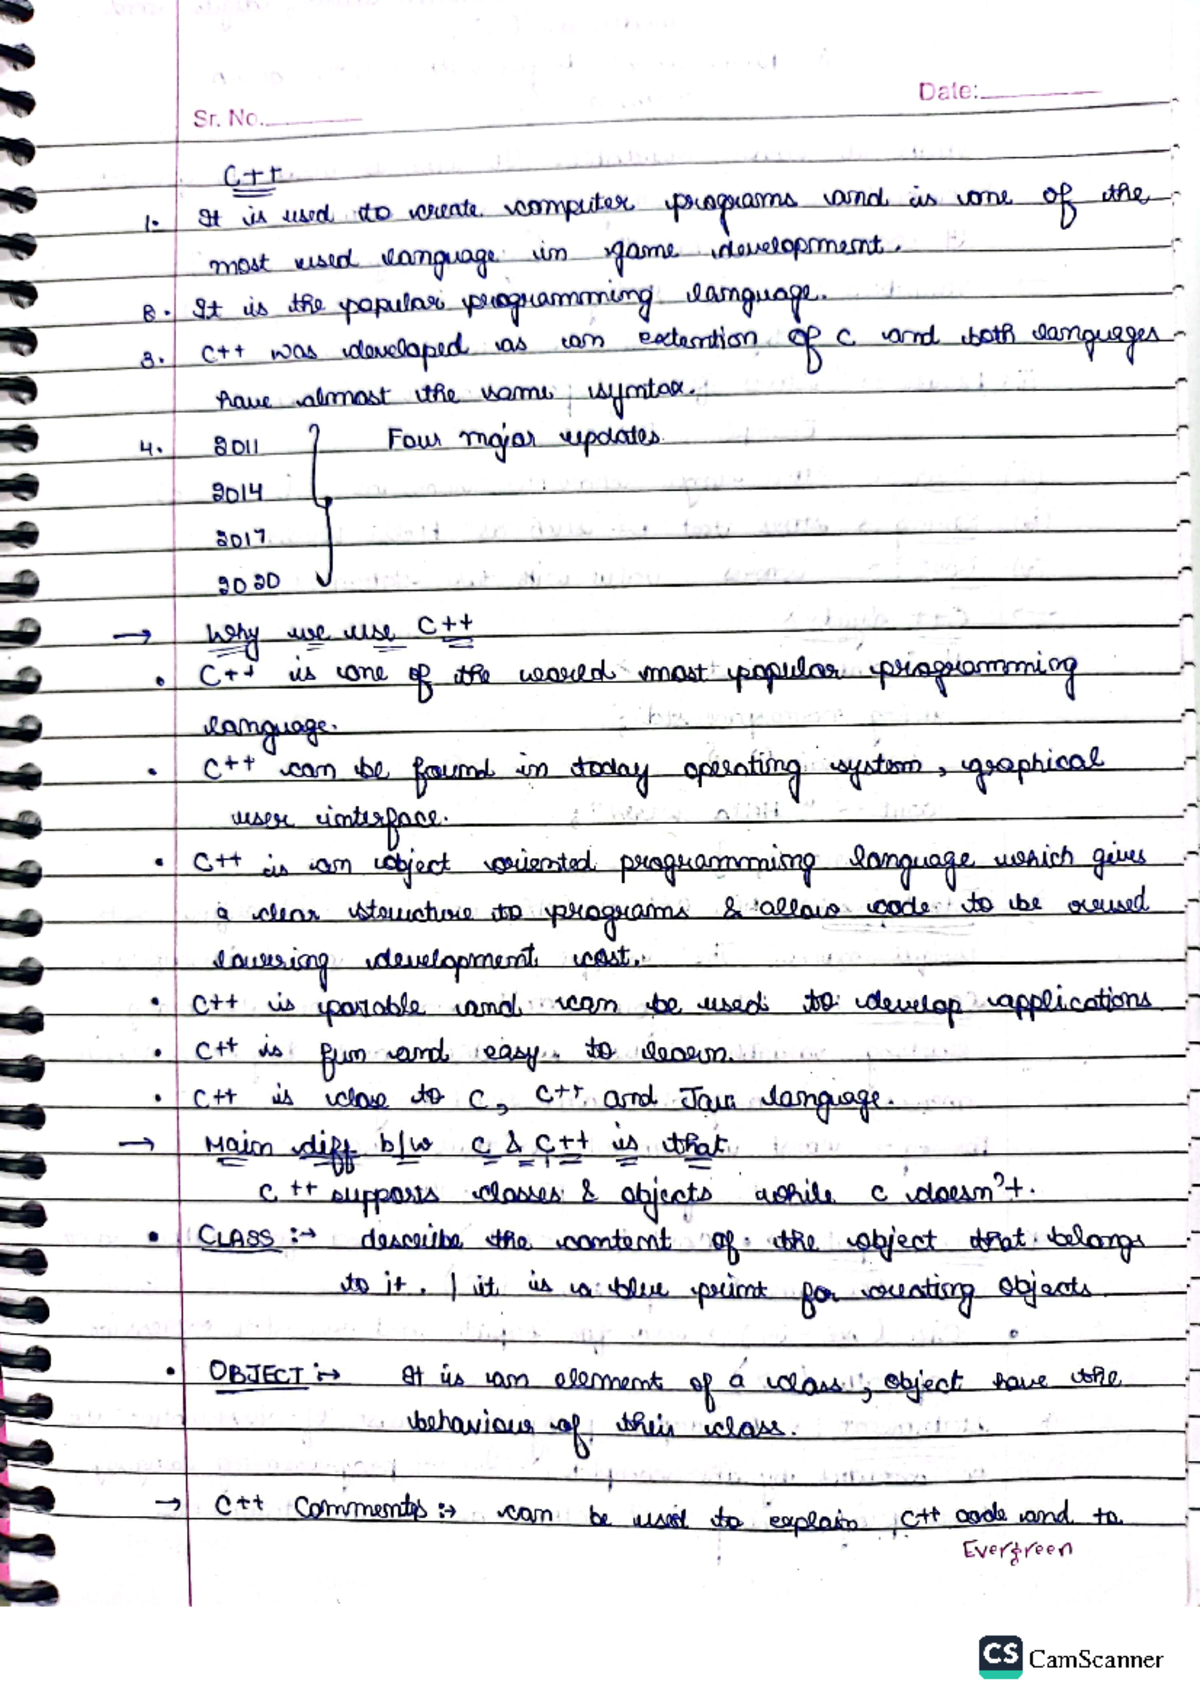 Date:
Sr. No.
C++
1. It is used to create computer programs and is one of the
most used language in game development.
2. It is the popular programming language.
3. C++ was developed as an extention of C and both languages
have almost the same syntax.
4. 2011 Four major updates
2014
2017
2020
→ Why we use C++
• C++ is one of the world most popular programming
language.
• C++ can be found in today operating system, graphical
user interface.
• C++ is an object oriented programming language which gives
a clear structure to programs & allow code to be reused
lowering development cost.
• C++ is portable and can be used to develop applications
• C++ is fun and easy to learn.
• C++ is close to C, C++ and Java language.
→ Main diff b/w C & C++ is that
C++ supports classes & objects while C doesn't.
• CLASS :→ describe the content of the object that belongs
to it. | it is a blue print for creating objects
• OBJECT :→ It is an element of a class, object have the
behaviour of their class.
→ C++ Comments :→ can be used to explain C++ code and to
Evergreen
CS CamScanner